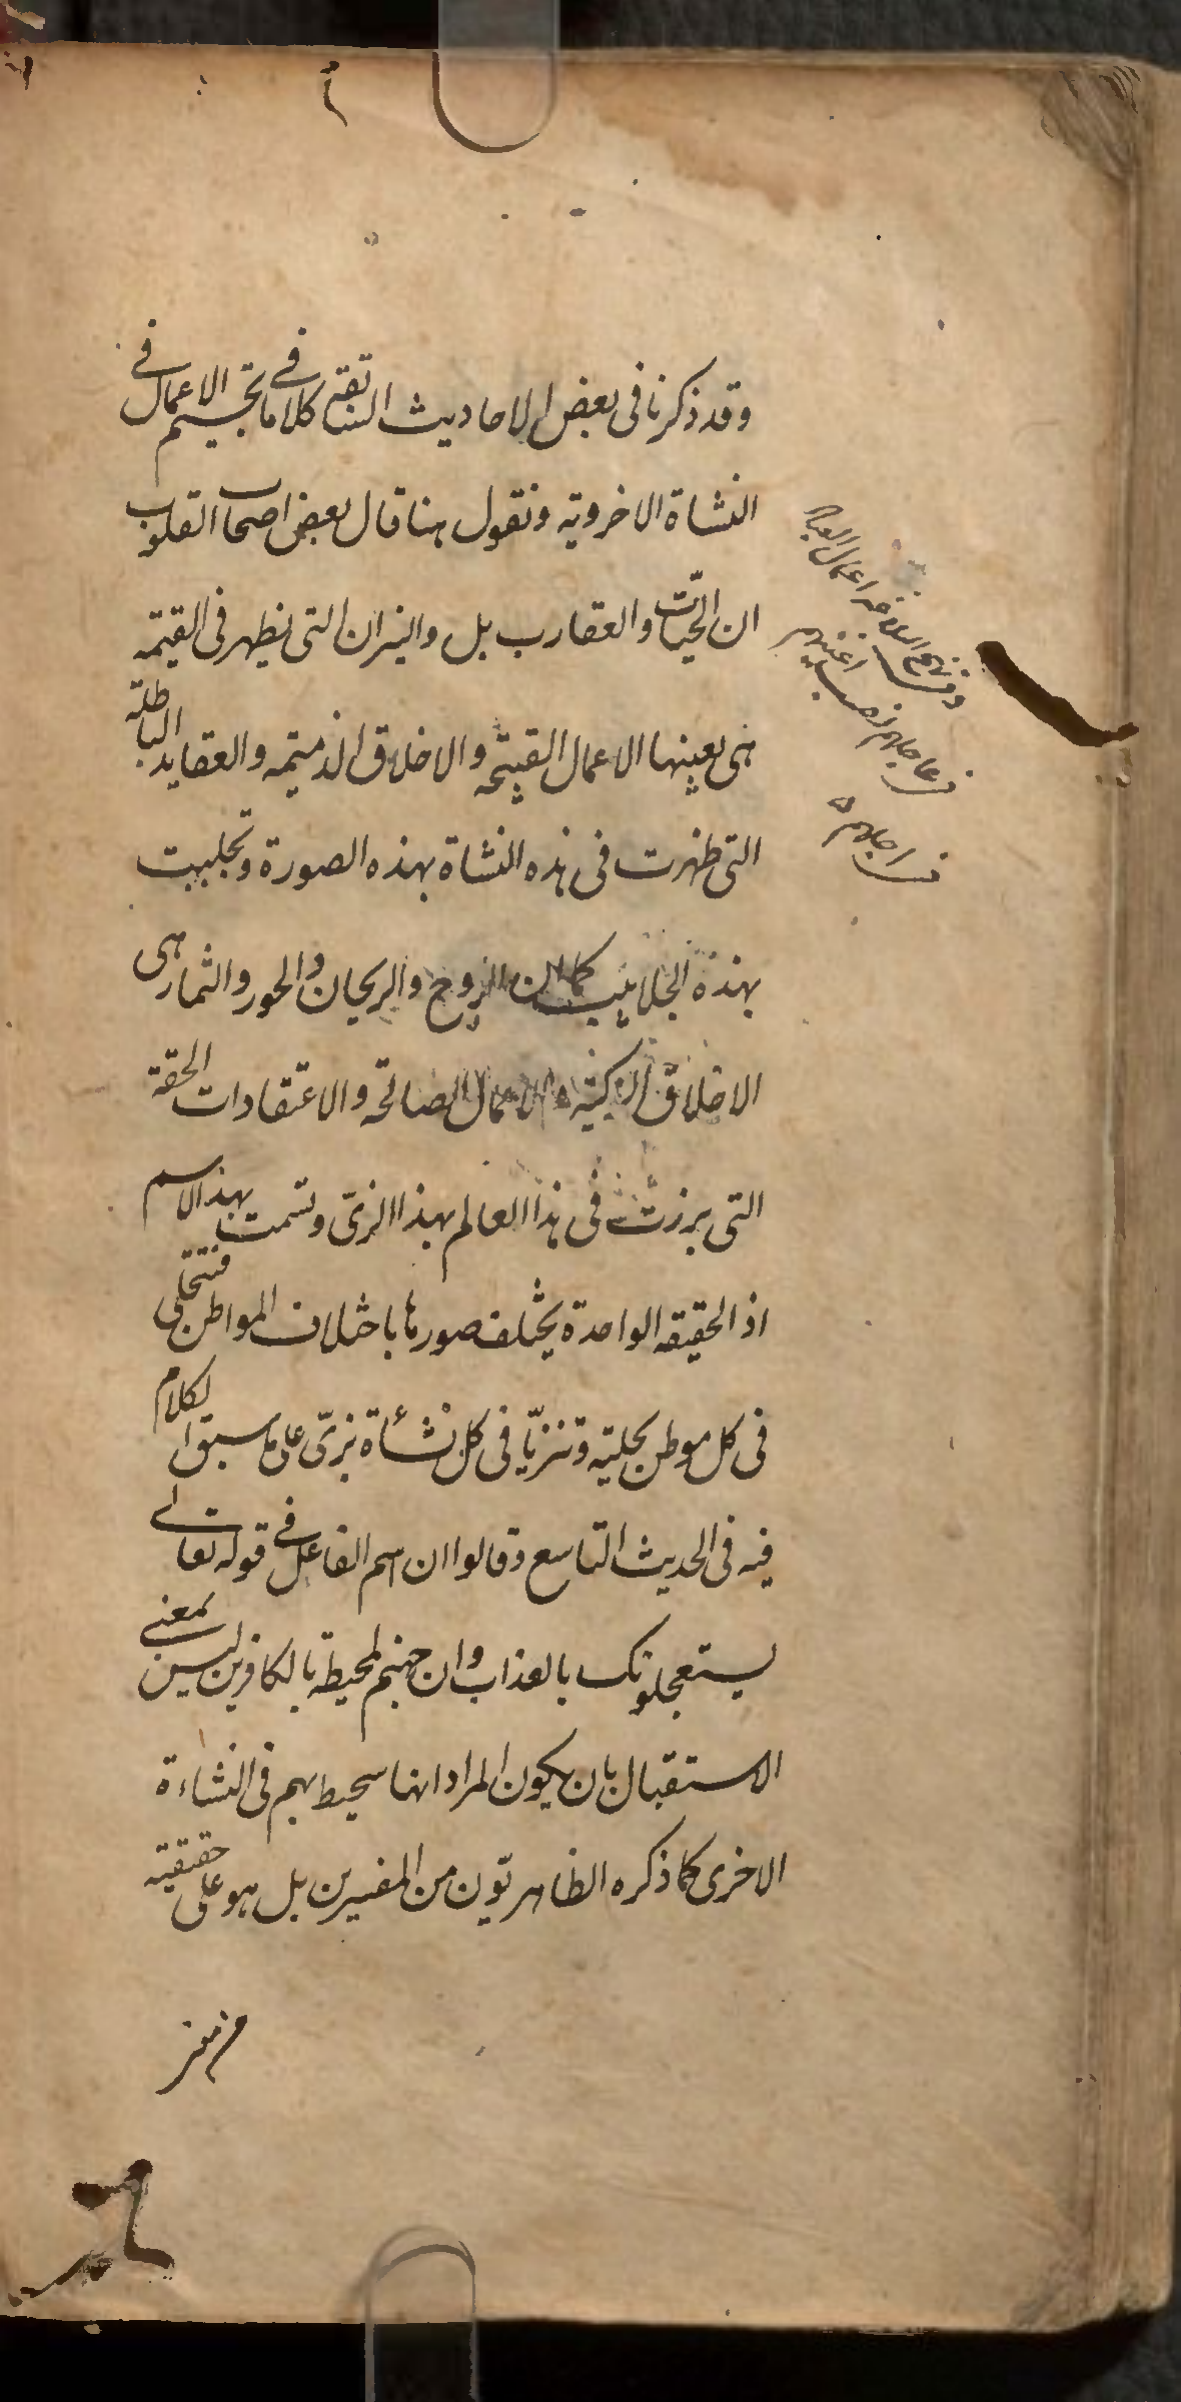 وقد ذكرنا فى بعض الاحاديث السابقة كلاما فى تجسيم الاعمال فى
النشاة الاخروية ونقول هنا قال بعض اصحاب القلوب
ان الحيّات والعقارب بل والنيران التى يظهر فى القيمة
هى بعينها الاعمال القبيحة والاخلاق الذميمة والعقايد الباطلة
التى ظهرت فى هذه النشاة بهذه الصورة وتجلببت
بهذه الجلابيب كما ان الروح والريحان والحور والثمار هى
الاخلاق الزكية والاعمال الصالحة والاعتقادات الحقة
التى برزت فى هذا العالم بهذا الزىّ وتسمت بهذا الاسم
اذ الحقيقه الواحدة يختلف صورها باختلاف المواطن فتتحلى
فى كل موطن بحلية وتتزيّا فى كل نشأة بزىّ على ما سبق الكلام
فيه فى الحديث التاسع وقالوا ان اسم الفاعل فى قوله تعالى
يستعجلونك بالعذاب وان جهنم لمحيطة بالكافرين ليس بمعنى
الاستقبال بان يكون المراد انها سحيط بهم فى النشاءة
الاخرى كما ذكره الظاهريّون من المفسرين بل هو على حقيقية
وفى نهج البلاغه اعمال العباد
فى عاجلهم نصب اعينهم
فى اجلهم